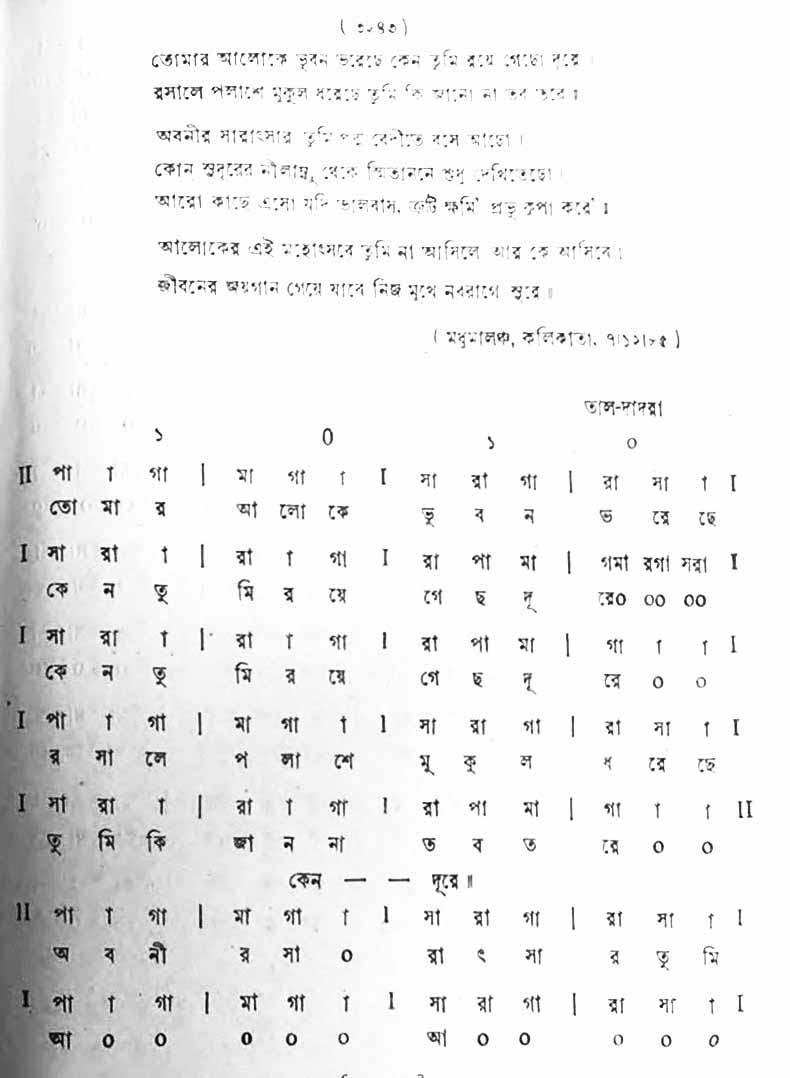 ( ৩০৪৩ )
তোমার আলোকে ভুবন ভরেছে কেন তুমি রয়ে গেছো দূরে ।
রসালে পলাশে মুকুল ধরেছে তুমি কি জানো না তব তরে ॥
অবনীর সারাৎসার তুমি পদ্ম বেদীতে বসে আছো ।
কোন সুদূরের নীলাম্বু থেকে স্মিতাননে শুধু দেখিতেছো ।
আরো কাছে এসো যদি ভালবাস, ত্রুটি ক্ষমি' প্রভু কৃপা করে' ॥
আলোকের এই মহোৎসবে তুমি না আসিলে আর কে আসিবে ।
জীবনের জয়গান গেয়ে যাবে নিজ মুখে নবরাগে সুরে ॥
( মধুমালঞ্চ, কলিকাতা, ৭।১২।৮৫ )
তাল-দাদরা
১ 0 ১ ০
II পা া গা | মা গা া I সা রা গা | রা সা া I
তো মা র আ লো কে ভু ব ন ভ রে ছে
I সা রা া | রা া গা I রা পা মা | গমা রগা সরা I
কে ন তু মি র য়ে গে ছ দূ রে০ ০০ ০০
I সা রা া | রা া গা I রা পা মা | গা া া I
কে ন তু মি র য়ে গে ছ দূ রে ০ ০
I পা া গা | মা গা া I সা রা গা | রা সা া I
র সা লে প লা শে মু কু ল ধ রে ছে
I সা রা া | রা া গা I রা পা মা | গা া া II
তু মি কি জা ন না ত ব ত রে ০ ০
কেন — — দূরে ॥
II পা া গা | মা গা া I সা রা গা | রা সা া I
অ ব নী র সা ০ রা ৎ সা র তু মি
I পা া গা | মা গা া I সা রা গা | রা সা া I
আ ০ ০ ০ ০ ০ আ ০ ০ ০ ০ ০